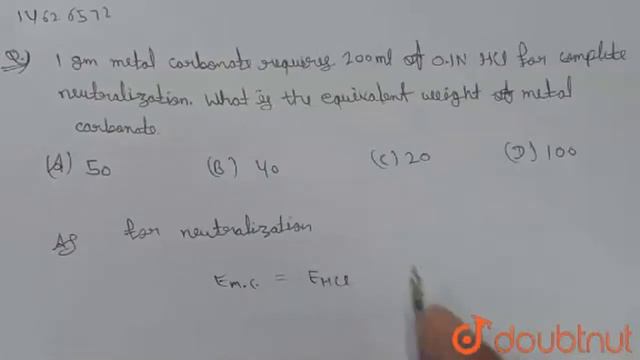 14626572
Q.) 1 gm metal carbonate requires 200ml of 0.1N HCl for complete
neutralization. What is the equivalent weight of metal
carbonate.
(A) 50 (B) 40 (C) 20 (D) 100
As for neutralization
Em.c. = EHCl
doubtnut